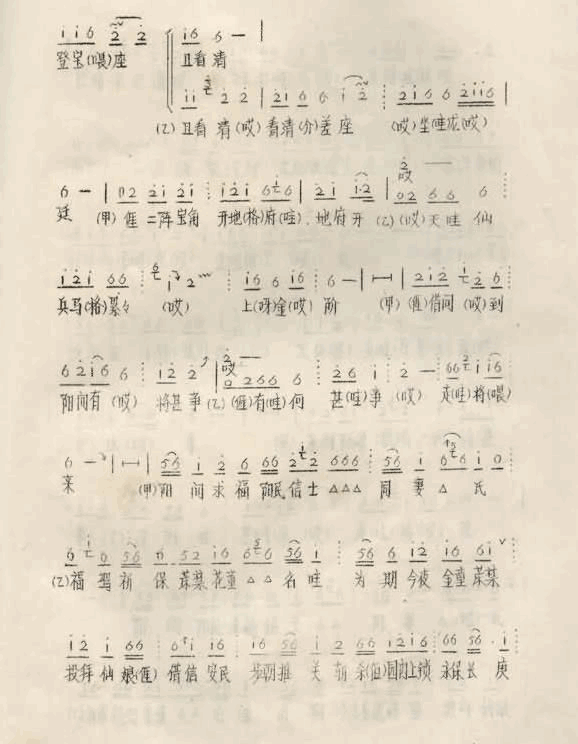 i i 6 2 2 i6 6 —
登宝(喂)座 且看清
i i 2 2 | 2i 6 6 i 2 2i6 6 2ii6 |
(乙)且看 清(哎)看清(介)差座 (哎)坐哇龙(哎)
6 — | 02 2i 2i i2i 6i6 | 2i i·2 | 02 66 6
廷 (甲)(俚)二阵宝角 开地(格)府(哇) 地府开 (乙)(哎)天哇仙
i2i 66 i 2 i6 6 i6 6 — |—| 2i2 i 2 6
兵马(格)累々 (哎) 上(呀)金(哎)阶 (甲)(俚)借问(哎)到
6 2i6 6 i2 2 0266 6 26 i 2 — 66 2 i i6
阳间有(哎) 将甚事(乙)(俚)有(哇)何 甚(哇)事(哎) 走(哇)将(喂)
6 — |—| 56 i 2 6 66 2 2 666 56 i 6 6 i 0
来 (甲)阳间求福 民信士△△△ 同妻△氏
6 6 56 6 52 i6 6 6 56 i 56 6 i2 i6 6i
(乙)福 祈保 某某花童△△名哇 为期今夜金童某某
i 2 i 66 6 i i6 i6 56 i 2 66 i2i6 66 56 i
投拜仙娘(俚)借信安民 关 上锁 永保长庚